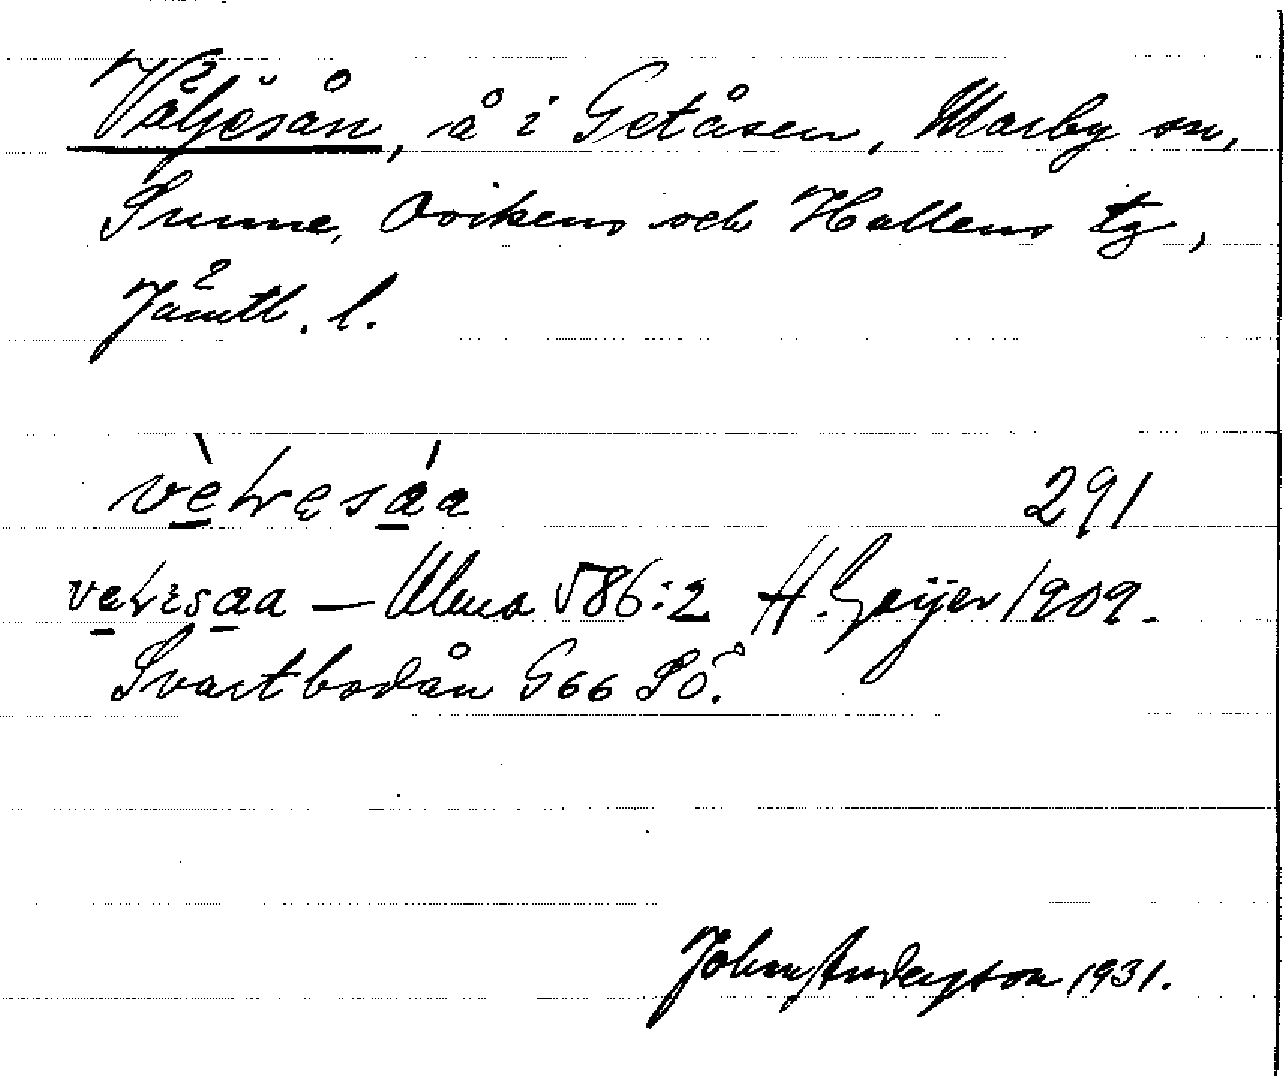 Väljesån, å i Getåsen, Marby sn,
Sunne, Ovikens och Hallens tg,
Jämtl. l.
291
Ulma 586:2 H. Geijer 1909.
Svartbodån G66 SÖ.
John Andersson 1931.